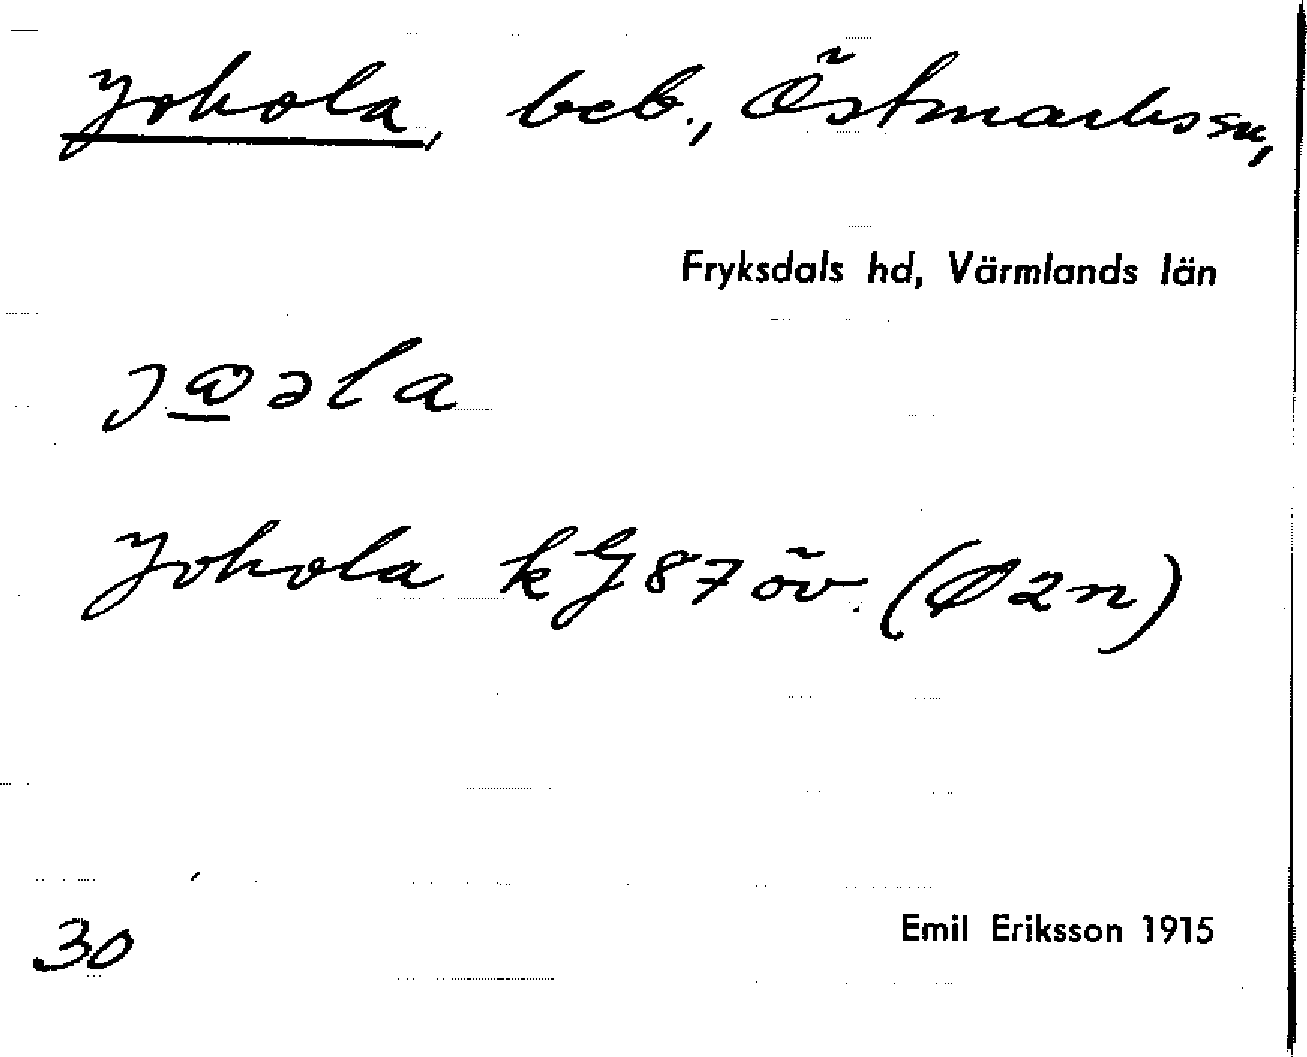 Johola, beb., Östmarks sn,
Fryksdals hd, Värmlands län
Johola kG 87 öv. (Ø2n)
30
Emil Eriksson 1915